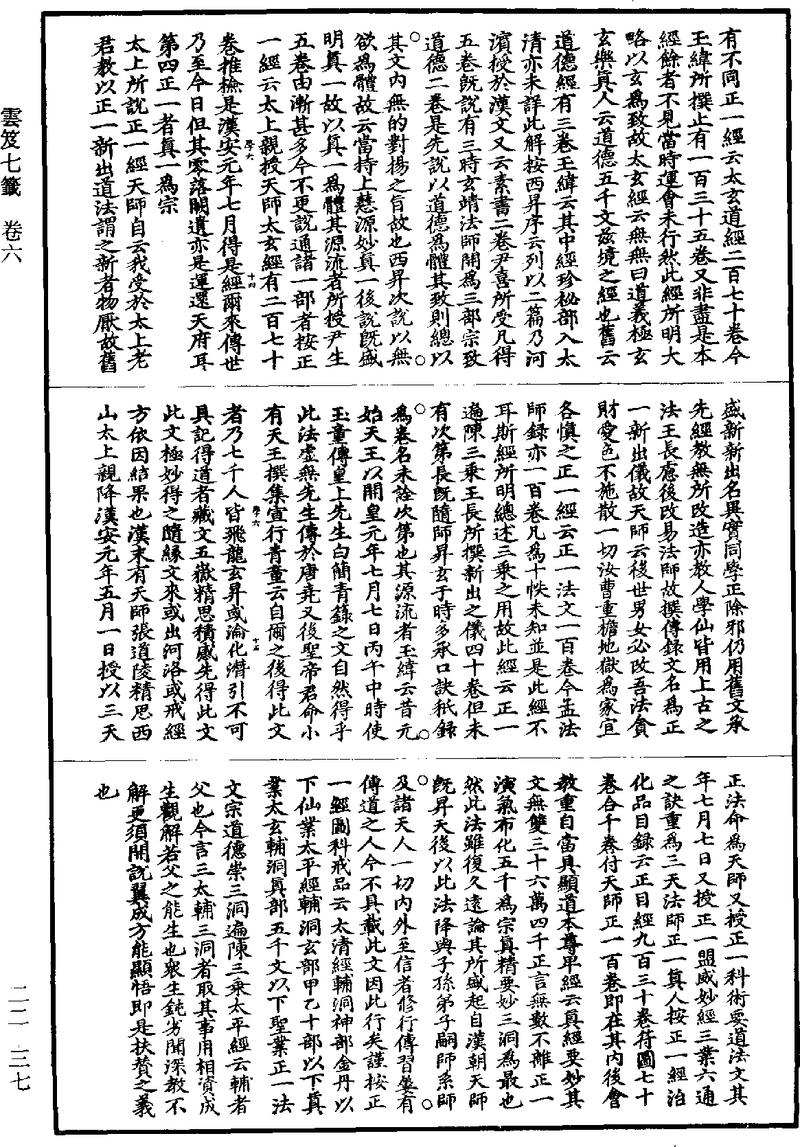 有不同正一經云太玄道經二百七十卷今
玉緯所撰止有一百三十五卷又非盡是本
經餘者不見當時運會未行然此經所明大
略以玄為致故太玄經云無無曰道義極玄
玄樂真人云道德五千文兹境之經也舊云
道德經有三卷玉緯云其中經珍祕部入太
清亦未詳此解按西昇序云列以二篇乃河
濱授於漢文又云素書二卷尹喜所受凡得
五卷既說有三時玄靖法師開為三部宗致
道德二卷是先說以道德為體其致則總以
其文內無的對揚之旨故也西昇次說以無
欲為體故云當持上慧源妙真一後說既盛
明真一故以真一為體其源流者所授尹生
五卷由漸甚多今不更說通諸一部者按正
一經云太上親授天師太玄經有二百七十
卷推檢是漢安元年七月得是經爾來傳世
乃至今日但其零落闕遺亦是運還天府耳
第四正一者真一為宗
太上所說正一經天師自云我受於太上老
君教以正一新出道法謂之新者物厭故舊
盛新新出名異實同學正除邪仍用舊文承
先經教無所改造亦教人學仙皆用上古之
法王長慮後改易法師故撰傳錄文名為正
一新出儀故天師云後世男女必改吾法貪
財愛色不施散一切汝曹重檐地獄為家宜
各慎之正一經云正一法文一百卷今孟法
師錄亦一百卷凡為十帙未知並是此經不
耳斯經所明總述三乘之用故此經云正一
遍陳三乘王長所撰新出之儀四十卷但未
有次第長既隨師昇玄于時多承口訣秖錄
為卷名未詮次第也其源流者玉緯云昔元
始天王以開皇元年七月七日丙午中時使
玉童傳皇上先生白簡青籙之文自然得乎
此法虛無先生傳於唐堯又後聖帝君命小
有天王撰集宣行青童云自爾之後得此文
者乃七千人皆飛龍玄昇或淪化潛引不可
具記得道者藏文五嶽精思積感先得此文
此文極妙得之隨緣文來或出河洛或戒經
方依因結果也漢末有天師張道陵精思西
山太上親降漢安元年五月一日授以三天
正法命為天師又授正一科術要道法文其
年七月七日又授正一盟威妙經三業六通
之訣重為三天法師正一真人按正一經治
化品目錄云正目經九百三十卷符圖七十
卷合千卷付天師正一百卷即在其內後會
教重自當具顯道本尊卑經云真經要妙其
文無雙三十六萬四千正言無數不離正一
演氣布化五千為宗真精要妙三洞為最也
然此法雖復久遠論其所盛起自漢朝天師
既昇天後以此法降與子孫弟子嗣師系師
及諸天人一切內外至信者修行傳習㡭有
傳道之人今不具載此文因此行矣謹按正
一經圖科戒品云太清經輔洞神部金丹以
下仙業太平經輔洞玄部甲乙十部以下真
業太玄輔洞真部五千文以下聖業正一法
文宗道德崇三洞遍陳三乘太平經云輔者
父也今言三太輔三洞者取其事用相資成
生觀解若父之能生也衆生鈍劣聞深教不
解更須開說翼成方能顯悟即是扶贊之義
也
雲笈七籤 卷六
二二 三七